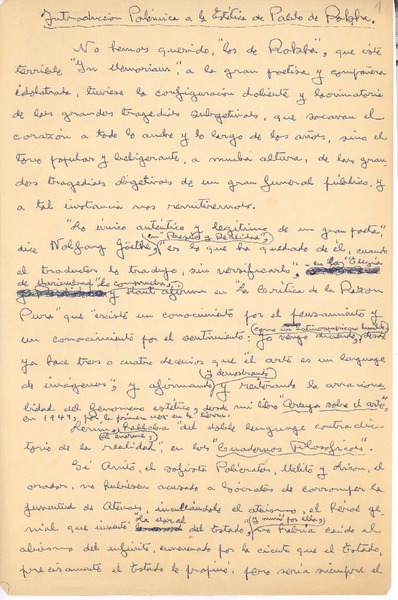 1
Introducción Polémica a la Estética de Pablo de Rokha.
No hemos querido, "los de Rokha", que este
terrible "In Memoriam", a la gran poetisa y compañera
idolatrada, tuviese la configuración doliente y lacrimatoria
de las grandes tragedias subjetivas, que socavan el
corazón a todo lo ancho y lo largo de los años, sino el
tono popular y beligerante, a mucha altura, de las gran
des tragedias objetivas de un gran funeral público, y
a tal instancia nos remitiremos.
"Lo único auténtico y legítimo de un gran poeta",
en "Poesía y Realidad",
dice Wolfgang Göethe, "es lo que ha quedado de él, cuando
el traductor lo tradujo, sin versificarlo",
y Kant afirma en "La Crítica de la Razón
Pura" que "existe un conocimiento por el pensamiento y
un conocimiento por el sentimiento: yo vengo diciendo, desde
ya hace tres o cuatro decenios que "el arte es un lenguaje
y demostrando
de imágenes", y afirmando y reiterando la arraciona
bilidad del fenómeno estético, desde mi libro "Arenga sobre el arte",
en 1949, por la primera vez en la tierra.
Lenin, hablaba "del doble lenguaje contradic-
(el enorme),
torio de la realidad", en los "Cuadernos Filosóficos".
Si Anito, el sofista Polícrates, Melito y Licon, el
orador, no hubiesen acusado a Sócrates de corromper la
juventud de Atenas, inculcándole el ateísmo, el héroe ge-
nial que inventó "la moral del Estado", (y murió por ella), habría caído al
abismo del infinito, envenenado por la cicuta que el Estado,
precisamente el Estado le propinó, pero sería siempre el